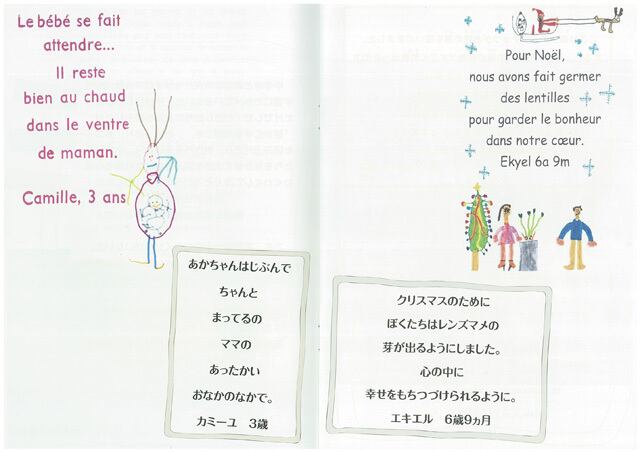 Le bébé se fait
attendre...
Il reste
bien au chaud
dans le ventre
de maman.
Camille, 3 ans
あかちゃんはじぶんで
ちゃんと
まってるの
ママの
あったかい
おなかのなかで。
カミーユ 3歳
Pour Noël,
nous avons fait germer
des lentilles
pour garder le bonheur
dans notre cœur.
Ekyel 6a 9m
クリスマスのために
ぼくたちはレンズマメの
芽が出るようにしました。
心の中に
幸せをもちつづけられるように。
エキエル 6歳9ヵ月